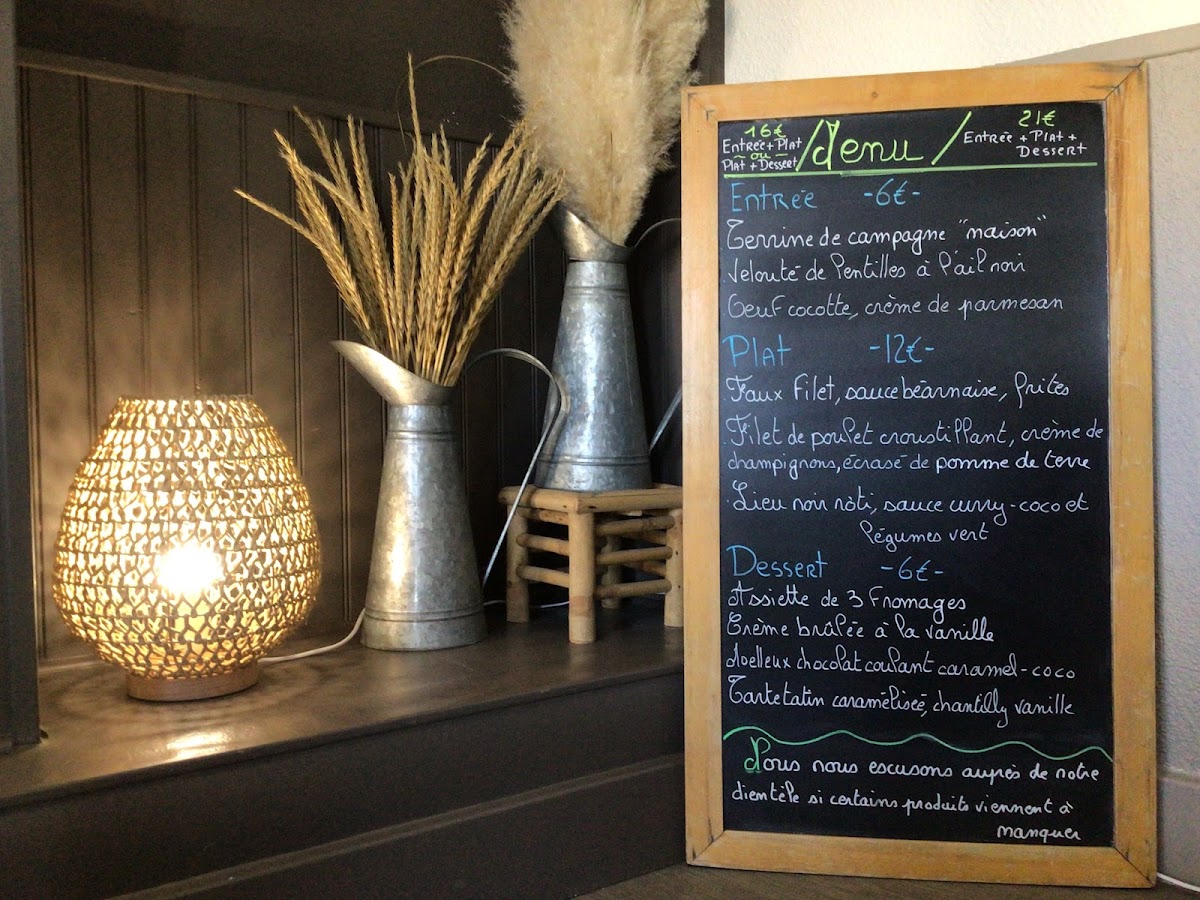 16€
Entrée + Plat
ou
Plat + Dessert
Menu
21€
Entrée + Plat +
Dessert
Entrée -6€-
Terrine de campagne "maison"
Velouté de lentilles à l'ail noir
Oeuf cocotte, crème de parmesan
Plat -12€-
Faux Filet, sauce béarnaise, frites
Filet de poulet croustillant, crème de
champignons, écrasé de pomme de terre
Lieu noir rôti, sauce curry-coco et
légumes vert
Dessert -6€-
Assiette de 3 Fromages
Crème brûlée à la vanille
Moelleux chocolat coulant caramel-coco
Tarte tatin caramélisée, chantilly vanille
Nous nous escusons auprès de notre
clientèle si certains produits viennent à
manquer